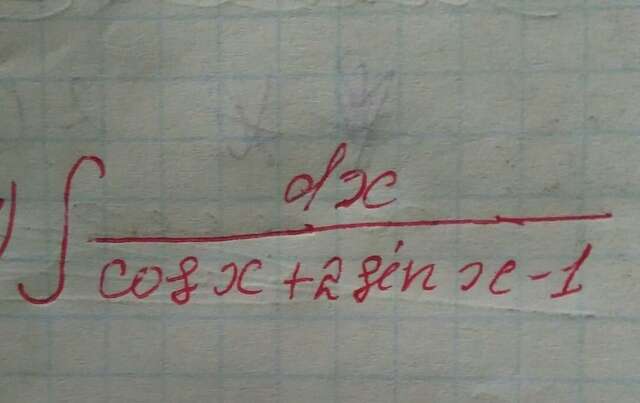 ) ∫ dx / (cos x + 2 sin x - 1)